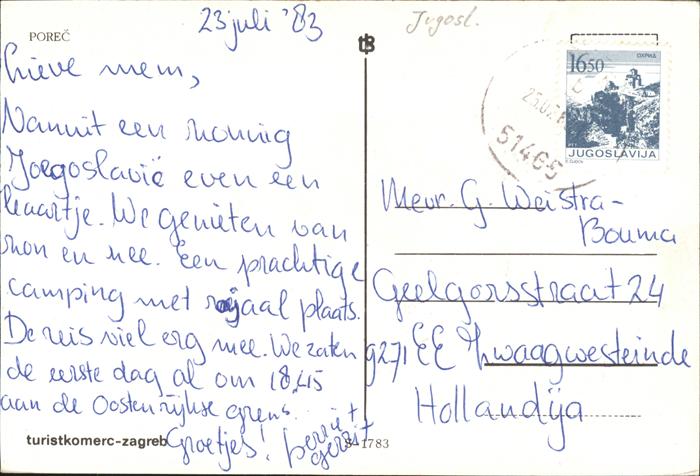 POREČ
23 juli '83
Lieve mem,
Vanuit een zonnig
Joegoslavië even een
kaartje. We genieten van
zon en zee. Een prachtige
camping met royaal plaats.
De reis viel erg mee. We zaten
de eerste dag al om 18.45
aan de Oostenrijkse grens.
Groetjes!
gerrit
turistkomerc-zagreb
S-1783
Jugosl.
1650
ОХРИД
PTT
JUGOSLAVIJA
51465
Mevr. G. Weistra-
Bouma
Geelgorsstraat 24
9271 EE Zwaagwesteinde
Hollandija